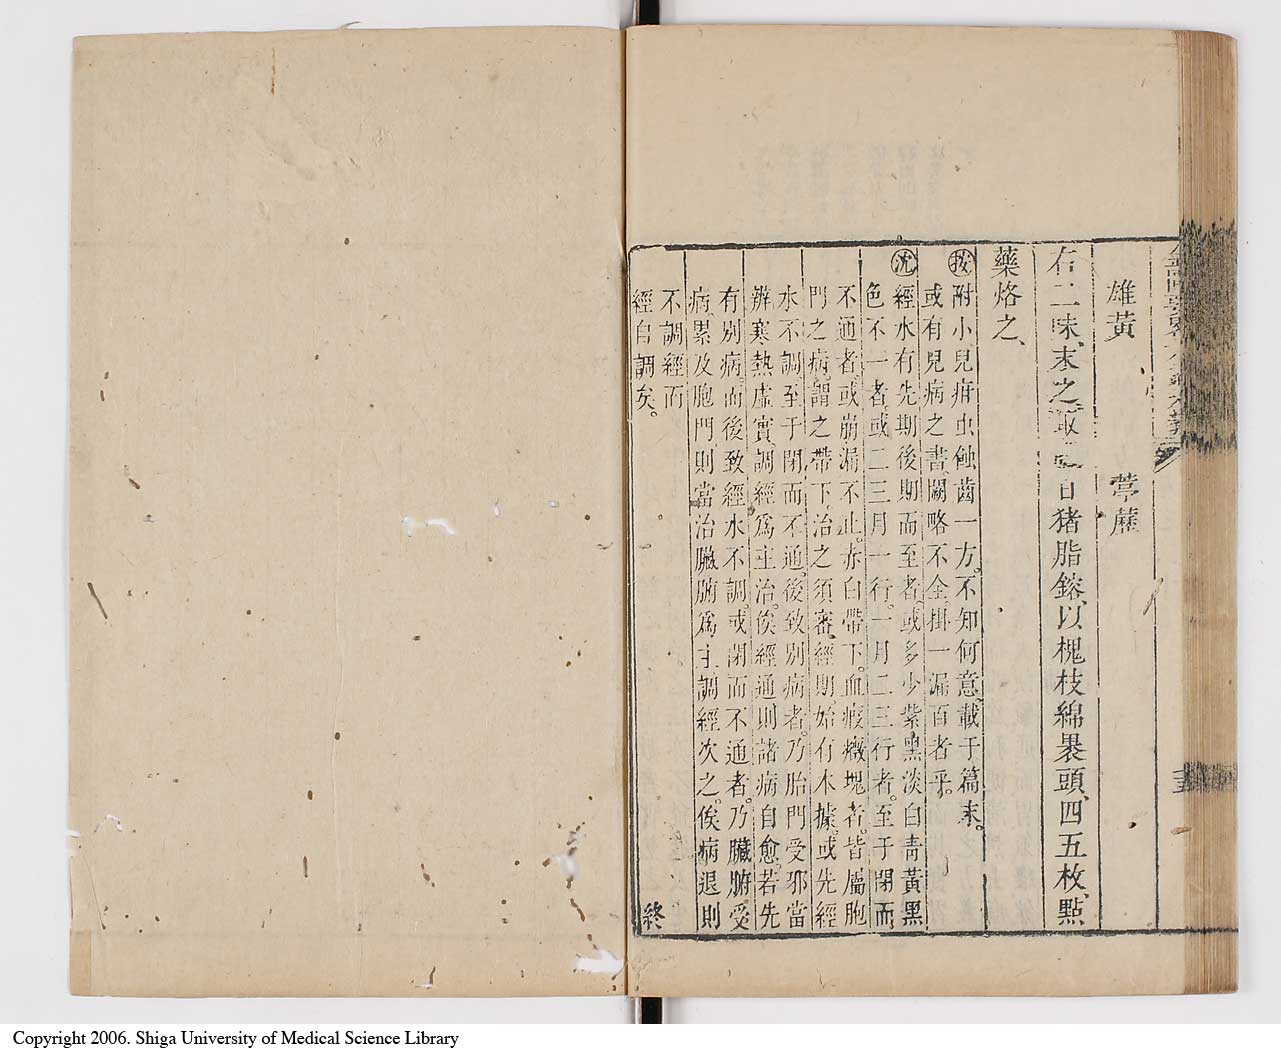 雄黃 葶藶
右二味、末之、取臘日猪脂鎔、以槐枝綿裹頭、四五枚、點
藥烙之、
按附小兒疳虫蝕齒一方。不知何意、載于篇末。
或有兒病之書、闕略不全、掛一漏百者乎。
沈經水有先期後期而至者。或多少紫黑淡白靑黃黑
色不一者。或二三月一行。一月二三行者。至于閉而
不通者、或崩漏不止。赤白帶下。血瘕癥塊者。皆屬胞
門之病、謂之帶下、治之須審、經期、始有本據。或先經
水不調、至于閉而不通。後致別病者。乃胎門受邪、當
辨寒熱虛實、調經爲主治。俟經通則諸病自愈。若先
有別病、而後致經水不調。或閉而不通者。乃臟腑受
病、累及胞門、則當治臟腑爲主、調經次之。俟病退則
不調經而
經自調矣。 終
Copyright 2006. Shiga University of Medical Science Library